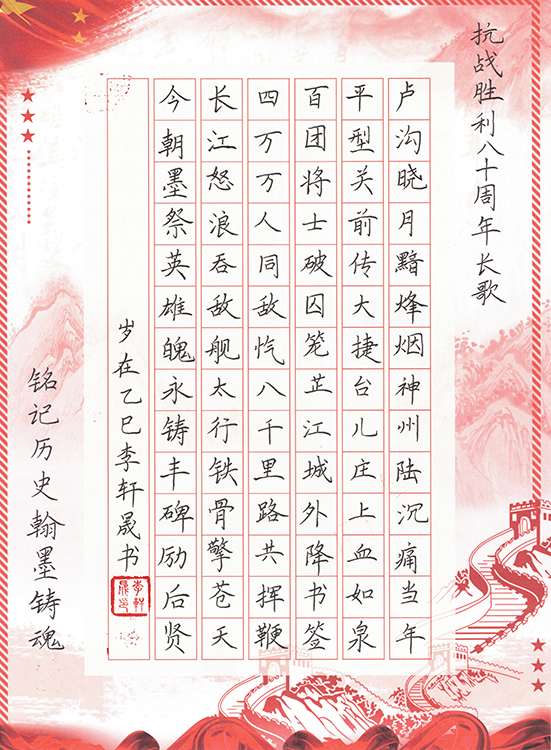 抗战胜利八十周年长歌
卢沟晓月黯烽烟神州陆沉痛当年
平型关前传大捷台儿庄上血如泉
百团将士破囚笼芷江城外降书签
四万万人同敌忾八千里路共挥鞭
长江怒浪吞敌舰太行铁骨擎苍天
今朝墨祭英雄魄永铸丰碑励后贤
岁在乙巳李轩晟书
李轩晟印
铭记历史翰墨铸魂